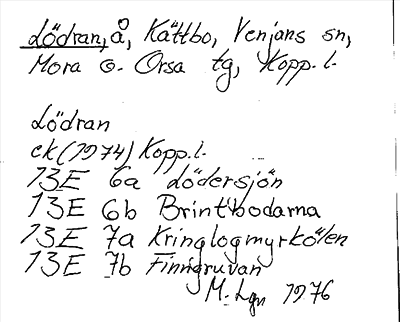 Lödran, å, Kättbo, Venjans sn,
Mora o. Orsa tg, Kopp. l.
Lödran
ek (1974) Kopp. l.
13E 6a Lödersjön
13E 6b Brintbodarna
13E 7a Kringlogmyrkölen
13E 7b Finngruvan
M. Lgn 1976